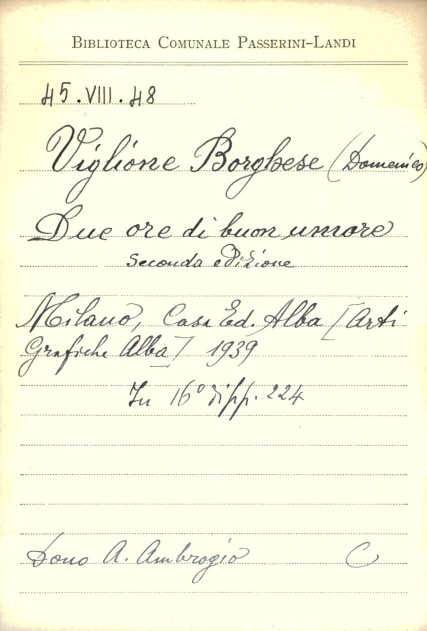 BIBLIOTECA COMUNALE PASSERINI-LANDI
45.VIII.48
Viglione Borghese (Domenico)
Due ore di buon umore
seconda edizione
Milano, Casa Ed. Alba [Arti
Grafiche Alba] 1939
In 16° di pp. 224
Dono A. Ambrogio C